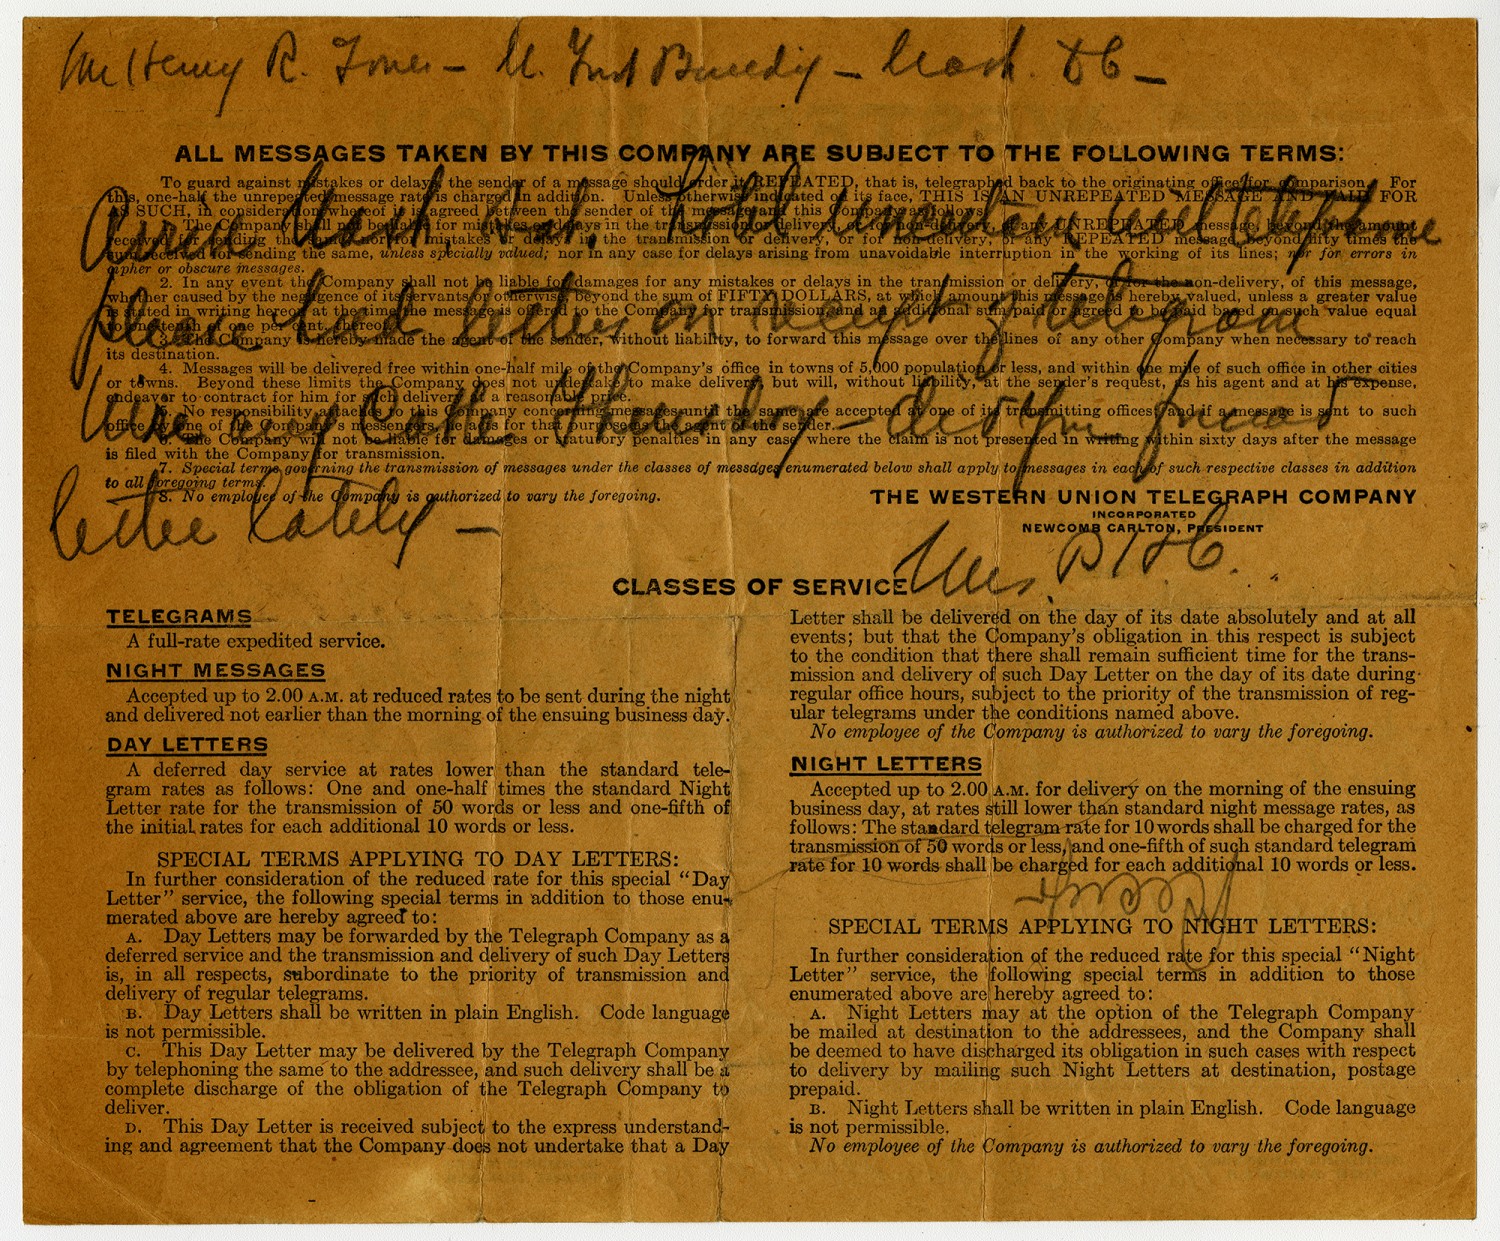 Mr Henry R. Jones - U. Trust Building - Wash. D C -
ALL MESSAGES TAKEN BY THIS COMPANY ARE SUBJECT TO THE FOLLOWING TERMS:
To guard against mistakes or delays, the sender of a message should order it REPEATED, that is, telegraphed back to the originating office for comparison. For
this, one-half the unrepeated message rate is charged in addition. Unless otherwise indicated on its face, THIS IS AN UNREPEATED MESSAGE AND PAID FOR
AS SUCH, in consideration whereof it is agreed between the sender of the message and this Company as follows:
Wash will telephone
1. The Company shall not be liable for mistakes or delays in the transmission or delivery, or for non-delivery, of any UNREPEATED message, beyond the amount
received for sending the same; nor for mistakes or delays in the transmission or delivery, or for non-delivery, of any REPEATED message, beyond fifty times the
sum received for sending the same, unless specially valued; nor in any case for delays arising from unavoidable interruption in the working of its lines; nor for errors in
cipher or obscure messages.
2. In any event the Company shall not be liable for damages for any mistakes or delays in the transmission or delivery, or for the non-delivery, of this message,
whether caused by the negligence of its servants or otherwise, beyond the sum of FIFTY DOLLARS, at which amount this message is hereby valued, unless a greater value
is stated in writing hereon at the time the message is offered to the Company for transmission, and an additional sum paid or agreed to be paid based on such value equal
to one-tenth of one per cent. thereof.
please send letter on receipt of telegram
3. The Company is hereby made the agent of the sender, without liability, to forward this message over the lines of any other Company when necessary to reach
its destination.
4. Messages will be delivered free within one-half mile of the Company's office in towns of 5,000 population or less, and within one mile of such office in other cities
or towns. Beyond these limits the Company does not undertake to make delivery, but will, without liability, at the sender's request, as his agent and at his expense,
endeavor to contract for him for such delivery at a reasonable price.
5. No responsibility attaches to this Company concerning messages until the same are accepted at one of its transmitting offices; and if a message is sent to such
office by one of the Company's messengers, he acts for that purpose as the agent of the sender.
Thursday - did you forward
6. The Company will not be liable for damages or statutory penalties in any case where the claim is not presented in writing within sixty days after the message
is filed with the Company for transmission.
7. Special terms governing the transmission of messages under the classes of messages enumerated below shall apply to messages in each of such respective classes in addition
to all foregoing terms.
8. No employee of the Company is authorized to vary the foregoing.
THE WESTERN UNION TELEGRAPH COMPANY
INCORPORATED
NEWCOMB CARLTON, PRESIDENT
letter lately -
Mrs. B H C.
CLASSES OF SERVICE
TELEGRAMS
A full-rate expedited service.
NIGHT MESSAGES
Accepted up to 2.00 A.M. at reduced rates to be sent during the night
and delivered not earlier than the morning of the ensuing business day.
DAY LETTERS
A deferred day service at rates lower than the standard tele-
gram rates as follows: One and one-half times the standard Night
Letter rate for the transmission of 50 words or less and one-fifth of
the initial rates for each additional 10 words or less.
SPECIAL TERMS APPLYING TO DAY LETTERS:
In further consideration of the reduced rate for this special "Day
Letter" service, the following special terms in addition to those enu-
merated above are hereby agreed to:
A. Day Letters may be forwarded by the Telegraph Company as a
deferred service and the transmission and delivery of such Day Letters
is, in all respects, subordinate to the priority of transmission and
delivery of regular telegrams.
B. Day Letters shall be written in plain English. Code language
is not permissible.
C. This Day Letter may be delivered by the Telegraph Company
by telephoning the same to the addressee, and such delivery shall be a
complete discharge of the obligation of the Telegraph Company to
deliver.
D. This Day Letter is received subject to the express understand-
ing and agreement that the Company does not undertake that a Day
Letter shall be delivered on the day of its date absolutely and at all
events; but that the Company's obligation in this respect is subject
to the condition that there shall remain sufficient time for the trans-
mission and delivery of such Day Letter on the day of its date during
regular office hours, subject to the priority of the transmission of reg-
ular telegrams under the conditions named above.
No employee of the Company is authorized to vary the foregoing.
NIGHT LETTERS
Accepted up to 2.00 A.M. for delivery on the morning of the ensuing
business day, at rates still lower than standard night message rates, as
follows: The standard telegram rate for 10 words shall be charged for the
transmission of 50 words or less, and one-fifth of such standard telegram
rate for 10 words shall be charged for each additional 10 words or less.
SPECIAL TERMS APPLYING TO NIGHT LETTERS:
In further consideration of the reduced rate for this special "Night
Letter" service, the following special terms in addition to those
enumerated above are hereby agreed to:
A. Night Letters may at the option of the Telegraph Company
be mailed at destination to the addressees, and the Company shall
be deemed to have discharged its obligation in such cases with respect
to delivery by mailing such Night Letters at destination, postage
prepaid.
B. Night Letters shall be written in plain English. Code language
is not permissible.
No employee of the Company is authorized to vary the foregoing.